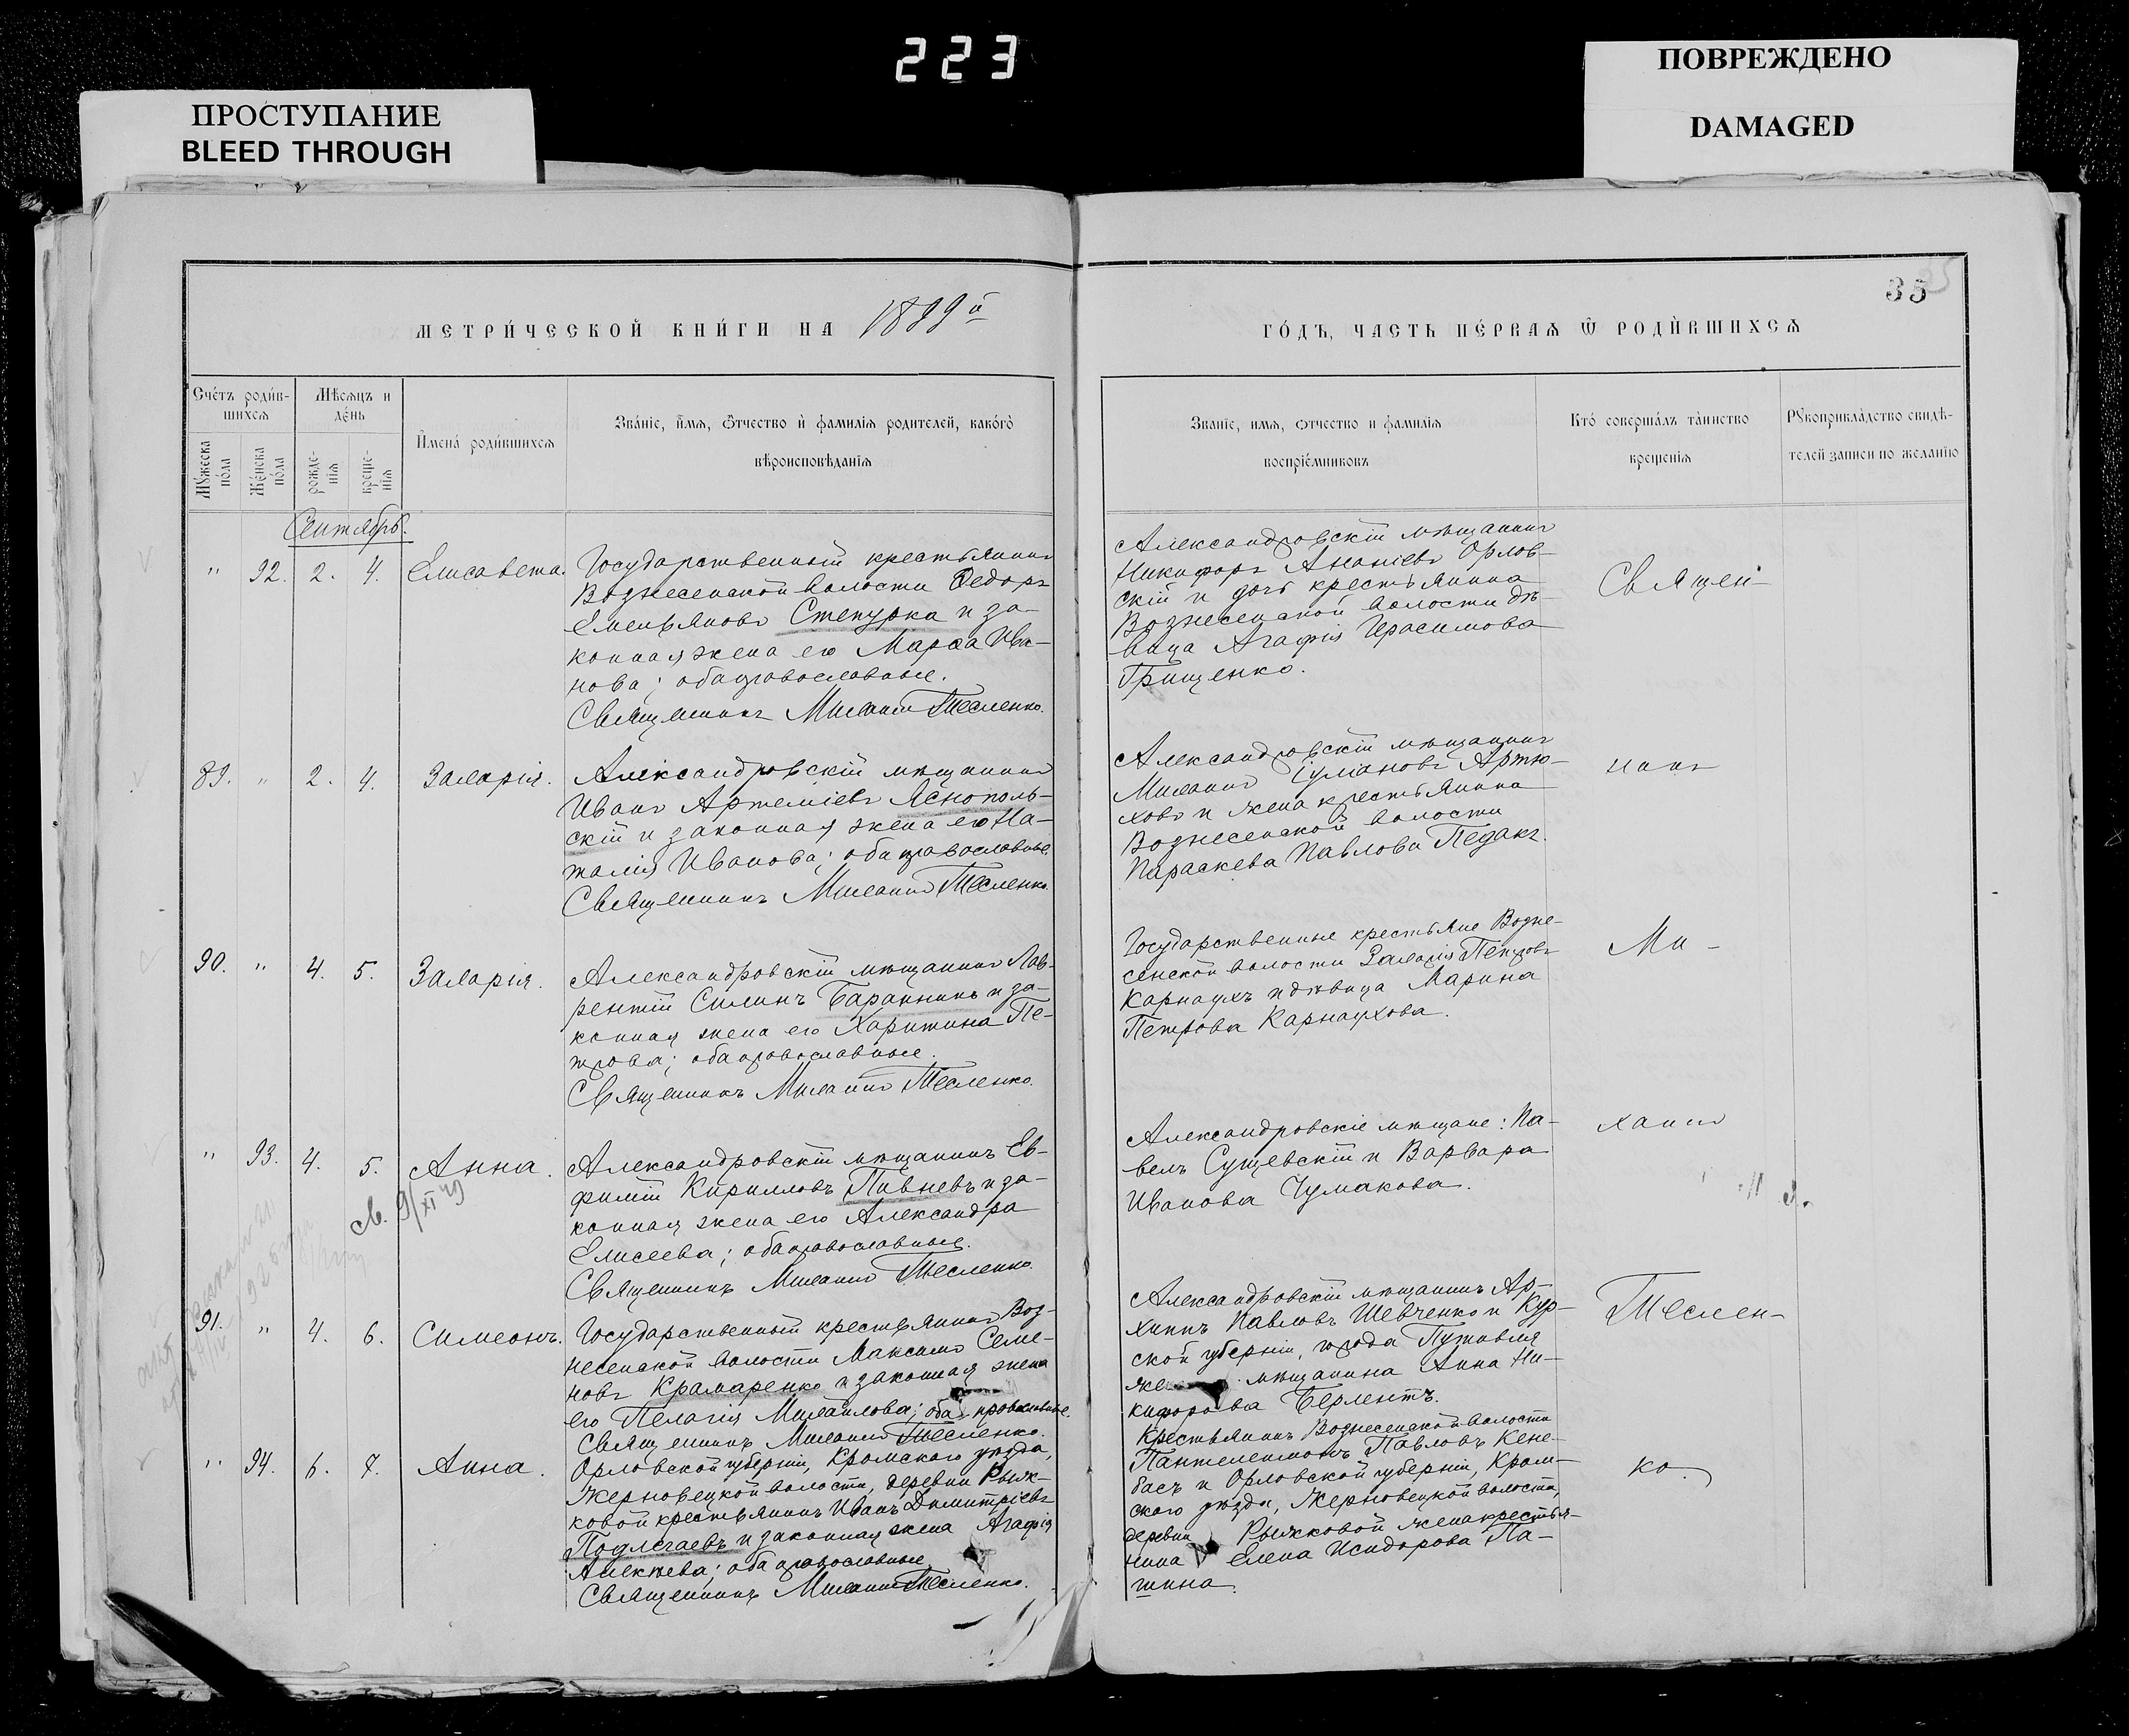 223
ПРОСТУПАНИЕ
BLEED THROUGH
ПОВРЕЖДЕНО
DAMAGED
35
МЕТРИ́ЧЕСКОЙ КНИ́ГИ НА 1899й
ГО́ДЪ, ЧАСТЬ ПЕ́РВАѦ Ѿ РОДИ́ВШИХСѦ
Сче́тъ роди́в-
шихсѧ
Мѣ́сѧцъ и
де́нь
Мꙋ́жеска
по́ла
Же́нска
по́ла
рожде-
нїѧ
креще-
нїѧ
И҆мена̀ роди́вшихсѧ
Зва́нїе, и҆́мѧ, ѻ҆́тчество и҆ фами́лїѧ родителей, како́гѡ
вѣроисповѣ́данїѧ
Званїе, имѧ, ѻтчество и фамилїѧ
воспрїе́мниковъ
Кто́ соверша́лъ та́инство
креще́нїѧ
Рꙋкоприкла́дство свидѣ́-
телей записи по желанїю
Сентябрь.
" 92. 2. 4. Елисавета.
Государственный крестьянинъ
Вознесенской волости Ѳедоръ
Емельяновъ Степурка и за-
конная жена его Марѳа Ива-
нова; оба православные.
Священникъ Михаилъ Тесленко.
Александровскій мѣщанинъ
Никифоръ Ананіевъ Орлов-
скій и дочь крестьянина
Вознесенской волости дѣ-
вица Агафія Герасимова
Грищенко.
Священ-
89. " 2. 4. Захарія.
Александровскій мѣщанинъ
Иванъ Артеміевъ Яснополь-
скій и законная жена его На-
талія Иванова; оба православные.
Священникъ Михаилъ Тесленко.
Александровскій мѣщанинъ
Михаилъ Іуліановъ Артю-
ховъ и жена крестьянина
Вознесенской волости
Параскева Павлова Педакъ.
никъ
90. " 4. 5. Захарія.
Александровскій мѣщанинъ Лав-
рентій Силинъ Баранникъ и за-
конная жена его Харитина Пе-
трова; оба православные.
Священникъ Михаилъ Тесленко.
Государственные крестьяне Возне-
сенской волости Захарія Петровъ
Карнаухъ и дѣвица Марина
Петрова Карнаухова.
Ми-
" 93. 4. 5. Анна.
св. 9/XI 49
Александровскій мѣщанинъ Ев-
фимій Кирилловъ Пивневъ и за-
конная жена его Александра
Елисеева; оба православные.
Священникъ Михаилъ Тесленко.
Александровскіе мѣщане: Па-
велъ Сущевскій и Варвара
Иванова Чумакова.
хаилъ
91. " 4. 6. Симеонъ.
Государственный крестьянинъ Воз-
несенской волости Максимъ Семе-
новъ Крамаренко и законная жена
его Пелагія Михайлова; оба православные.
Священникъ Михаилъ Тесленко.
Александровскій мѣщанинъ Ар-
хипъ Павловъ Шевченко и Кур-
ской губерніи, города Путивля
же мѣщанина Анна Ни-
кифорова Берлентъ.
Теслен-
" 94. 6. 7. Анна.
Орловской губерніи, Кромского уѣзда,
Жерновецкой волости, деревни Рыж-
ковой крестьянинъ Иванъ Димитріевъ
Подлегаевъ и законная жена Агафія
Алексѣева; оба православные.
Священникъ Михаилъ Тесленко.
Крестьянинъ Вознесенской волости
Пантелеимонъ Павловъ Кене-
басъ и Орловской губерніи, Кром-
ского уѣзда, Жерновецкой волости,
деревни Рыжковой жена крестья-
нина Елена Исидорова Па-
шина.
ко.